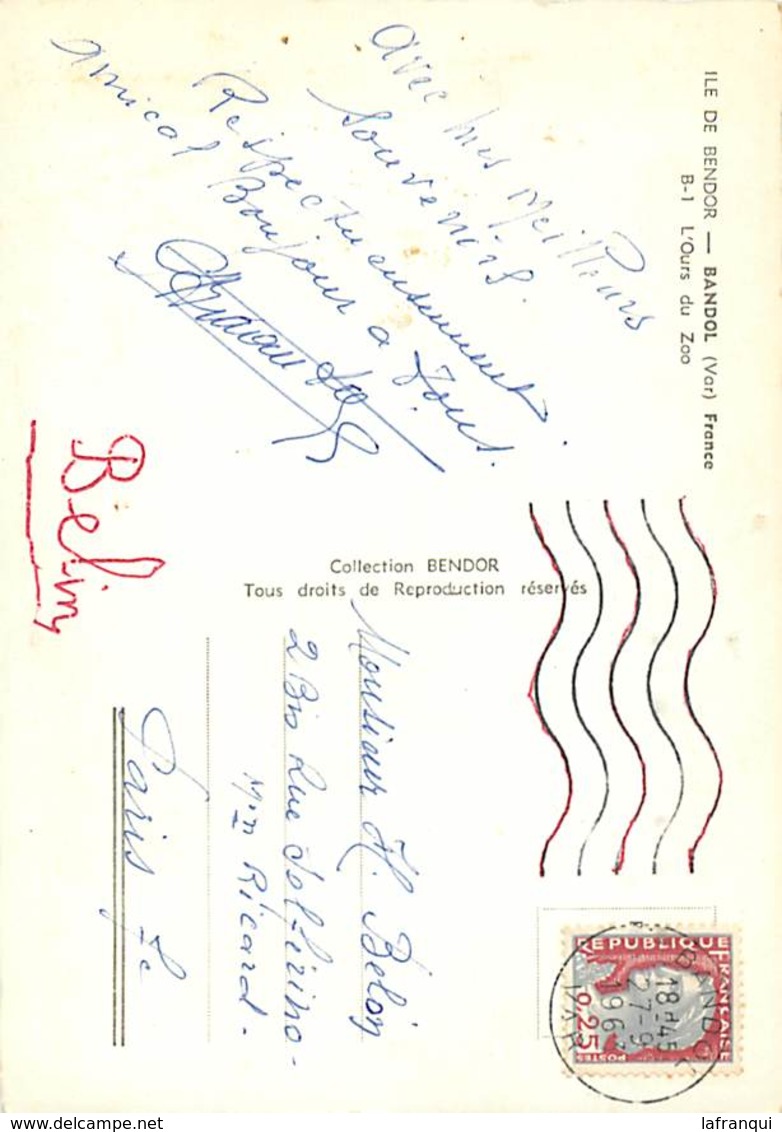 ILE DE BENDOR — BANDOL (Var) France
B-1 L'Ours du Zoo
avec mes meilleurs
souvenirs.
Respectueusement
amical Bonjour a Tous.
Belin
Collection BENDOR
Tous droits de Reproduction réservés
Monsieur H. Belin
2 Bis Rue Solférino-
Mon Ricard-
Paris 7e
REPUBLIQUE FRANÇAISE
0,25
POSTES
BANDOL
18H45
27-9
196
VAR
lafranqui